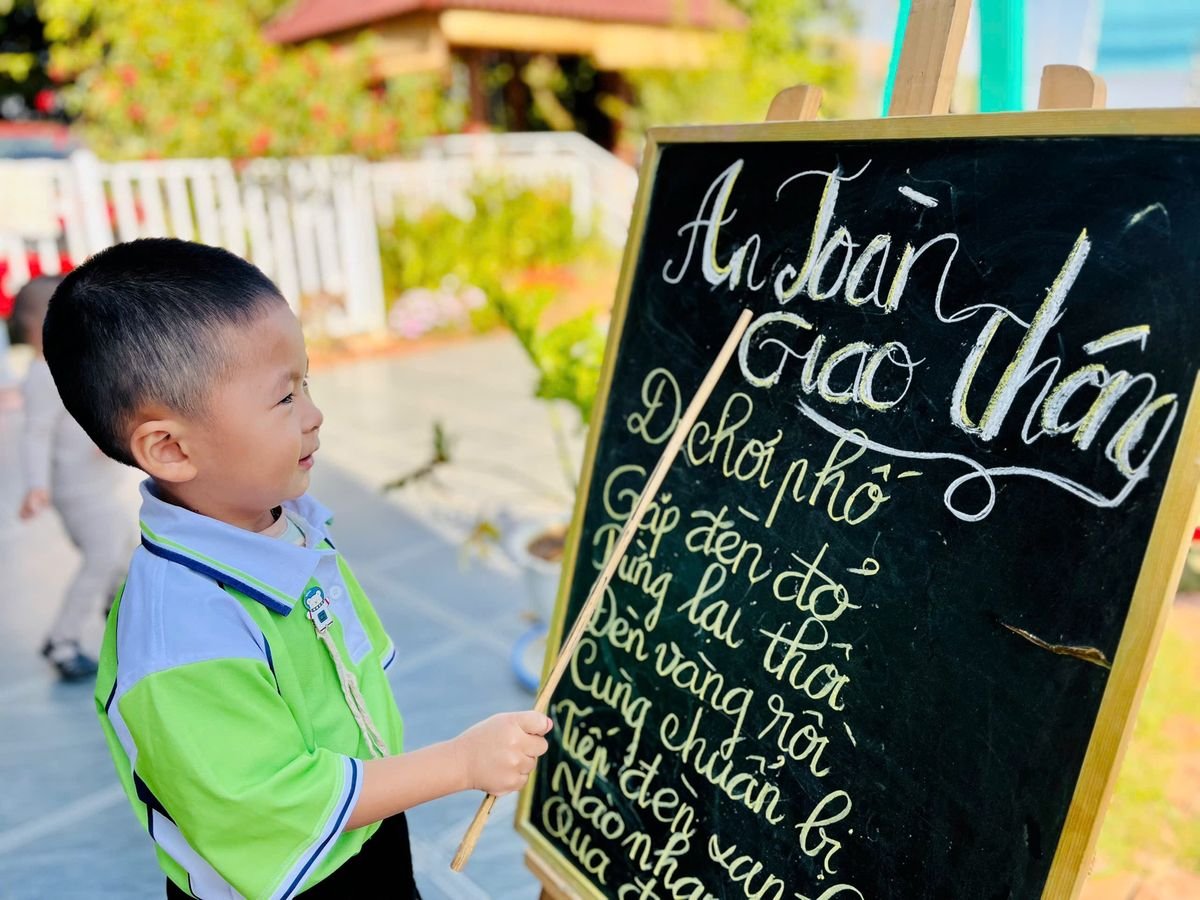 An Toàn
Giao Thông
Đi chơi phố
Gặp đèn đỏ
Dừng lại thôi
Đèn vàng rồi
Cùng chuẩn bị
Tiếp đèn xanh
Nào nhanh
Qua